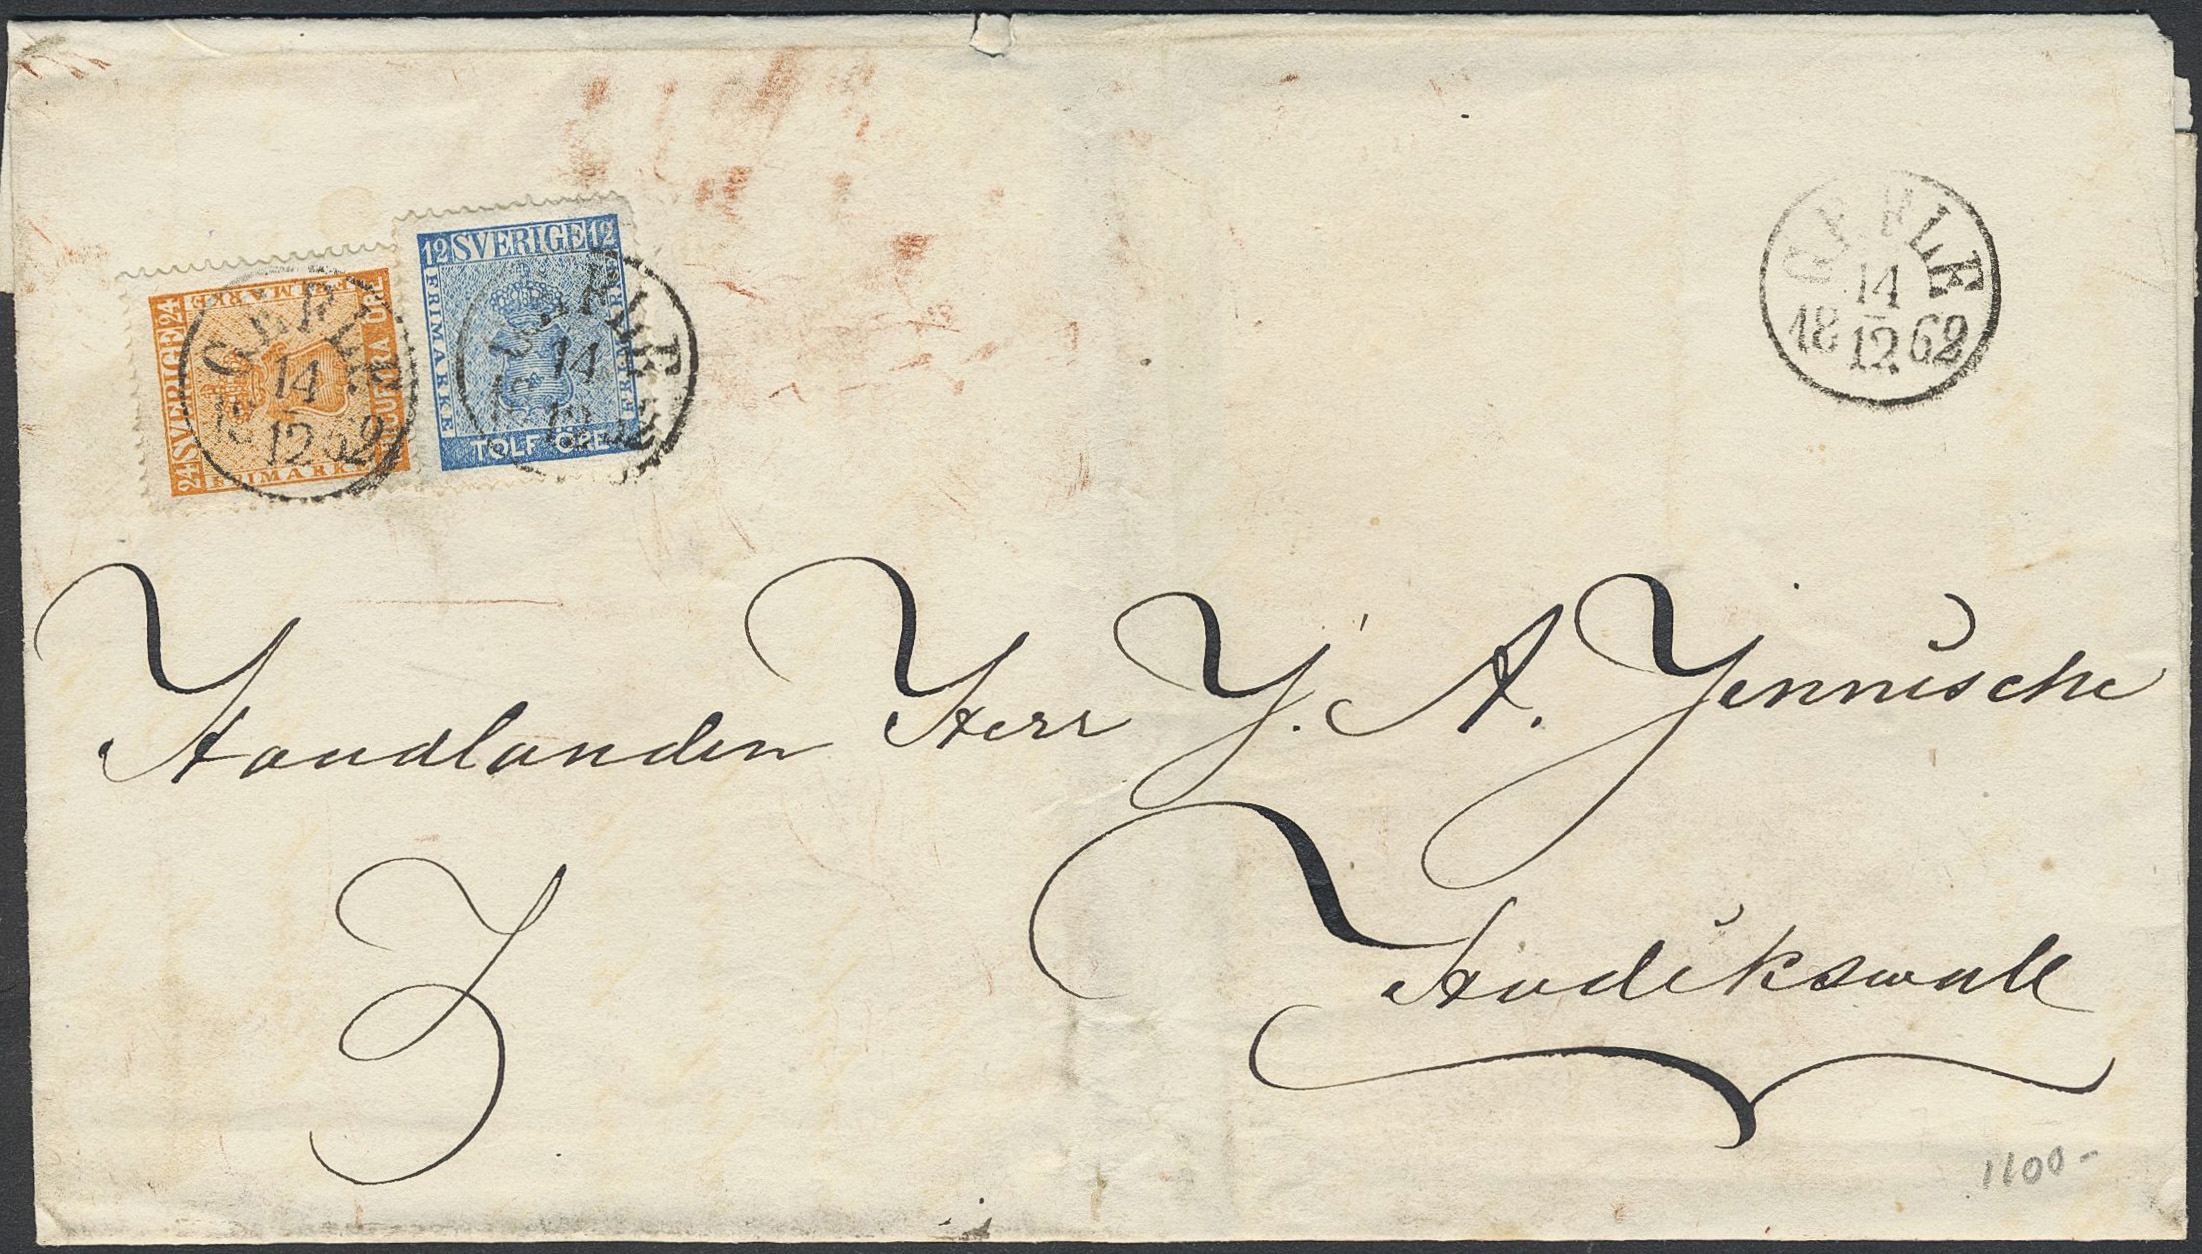 12 SVERIGE 12
FRIMÄRKE
FRIMÄRKE
TOLF ÖRE
24 SVERIGE 24
FRIMÄRKE
FRIMÄRKE
TJUGUFYRA ÖRE
GEFLE
14
18 12 62
GEFLE
14
18 12 62
GEFLE
14
18 12 62
Handlanden Herr J. A. Jennische
Hudikswall
1100-